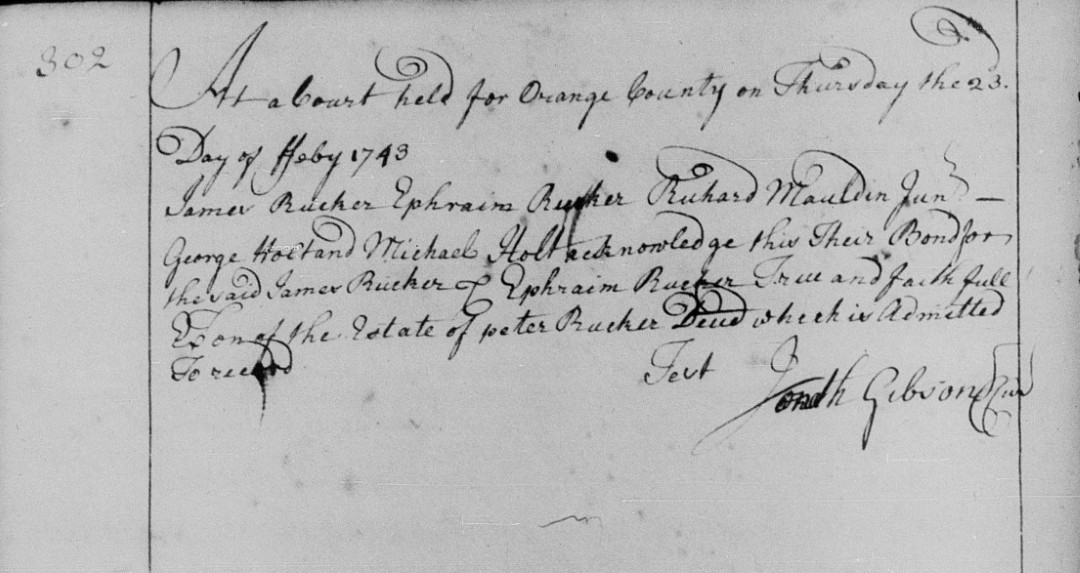 302
At a Court held for Orange County on Thursday the 23.
Day of ffeby 1743
James Rucker Ephraim Rucker Richard Mauldin Junr —
George Holt and Michael Holt acknowledge this Their Bond for
the said James Rucker & Ephraim Rucker True and faith full
Exon of the Estate of peter Rucker Decd which is Admitted
To record
Test Jonath Gibson